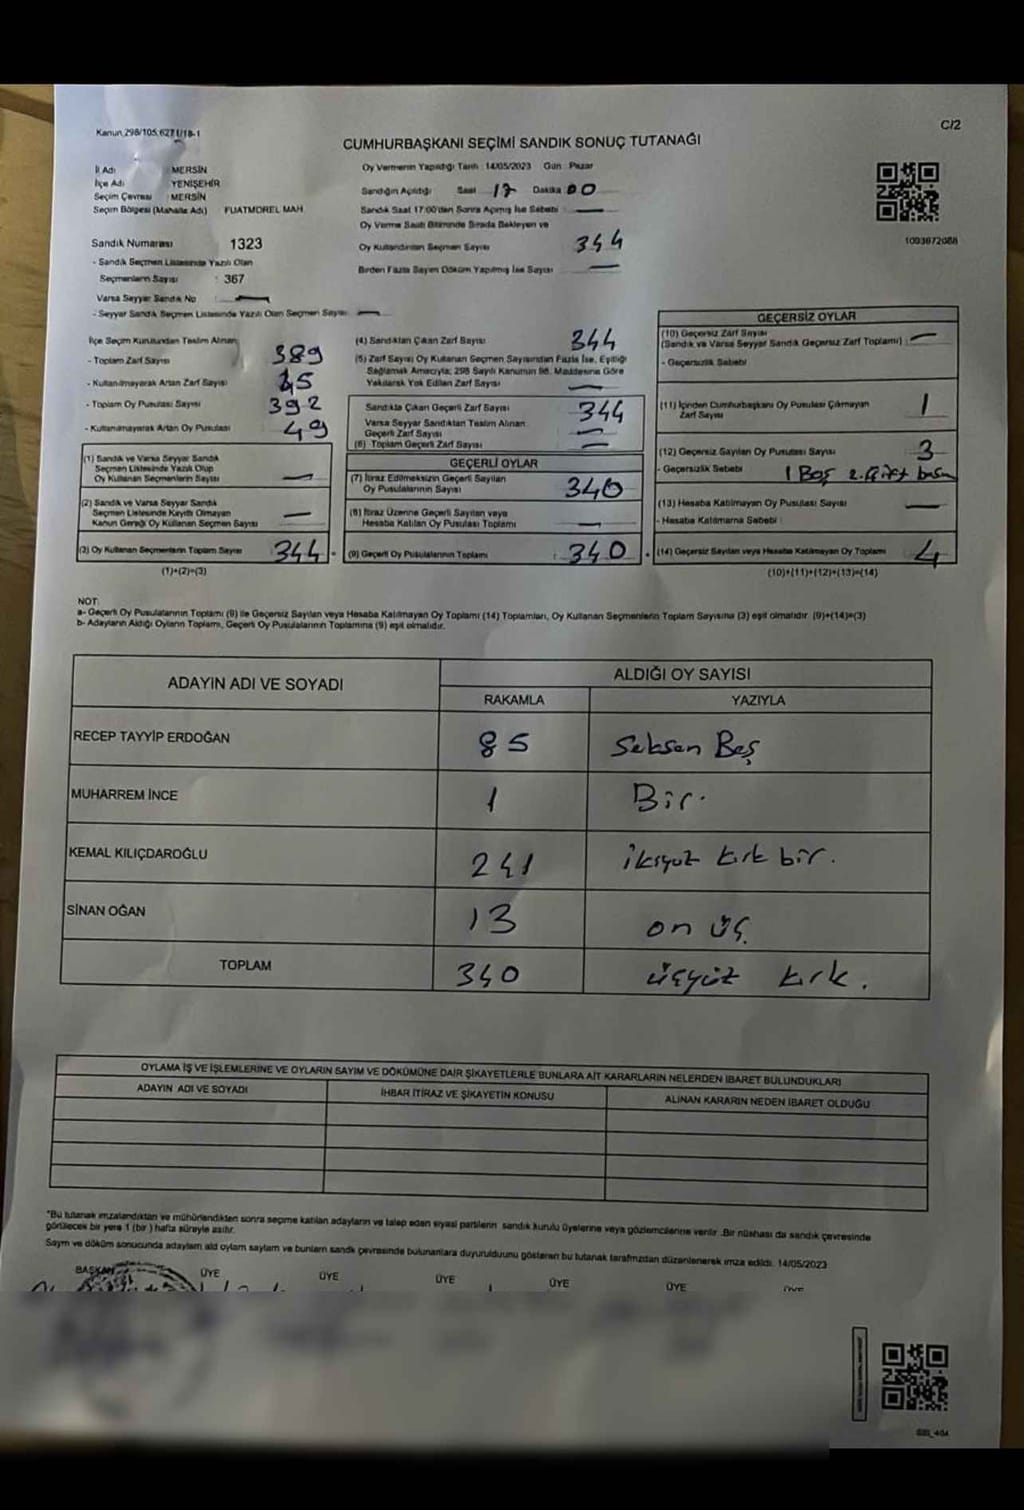 Kanun 298/105, 6271/18-1
C/2
CUMHURBAŞKANI SEÇİMİ SANDIK SONUÇ TUTANAĞI
İl Adı MERSİN
İlçe Adı YENİŞEHİR
Seçim Çevresi MERSİN
Seçim Bölgesi (Mahalle Adı) FUATMOREL MAH.
Sandık Numarası 1323
- Sandık Seçmen Listesinde Yazılı Olan
Seçmenlerin Sayısı : 367
Varsa Seyyar Sandık No : —
- Seyyar Sandık Seçmen Listesinde Yazılı Olan Seçmen Sayısı —
Oy Vermenin Yapıldığı Tarih : 14/05/2023 Gün : Pazar
Sandığın Açıldığı Saat 17 Dakika 00
Sandık Saat 17:00'den Sonra Açılmış İse Sebebi : —
Oy Verme Saati Bitiminde Sırada Bekleyen ve
Oy Kullandırılan Seçmen Sayısı 344
Birden Fazla Sayım Döküm Yapılmış İse Sayısı —
1093672088
İlçe Seçim Kurulundan Teslim Alınan
- Toplam Zarf Sayısı 389
- Kullanılmayarak Artan Zarf Sayısı 45
- Toplam Oy Pusulası Sayısı 392
- Kullanılmayarak Artan Oy Pusulası 49
(1) Sandık ve Varsa Seyyar Sandık
Seçmen Listesinde Yazılı Olup
Oy Kullanan Seçmenlerin Sayısı —
(2) Sandık ve Varsa Seyyar Sandık
Seçmen Listesinde Kayıtlı Olmayan
Kanun Gereği Oy Kullanan Seçmen Sayısı —
(3) Oy Kullanan Seçmenlerin Toplam Sayısı 344
(1)+(2)=(3)
(4) Sandıktan Çıkan Zarf Sayısı 344
(5) Zarf Sayısı Oy Kullanan Seçmen Sayısından Fazla İse, Eşitliği
Sağlamak Amacıyla; 298 Sayılı Kanunun 98. Maddesine Göre
Yakılarak Yok Edilen Zarf Sayısı —
Sandıkta Çıkan Geçerli Zarf Sayısı 344
Varsa Seyyar Sandıktan Teslim Alınan
Geçerli Zarf Sayısı —
(6) Toplam Geçerli Zarf Sayısı —
GEÇERLİ OYLAR
(7) İtiraz Edilmeksizin Geçerli Sayılan
Oy Pusulalarının Sayısı 340
(8) İtiraz Üzerine Geçerli Sayılan veya
Hesaba Katılan Oy Pusulası Toplamı —
(9) Geçerli Oy Pusulalarının Toplamı : 340
GEÇERSİZ OYLAR
(10) Geçersiz Zarf Sayısı
(Sandık ve Varsa Seyyar Sandık Geçersiz Zarf Toplamı) : —
- Geçersizlik Sebebi
(11) İçinden Cumhurbaşkanı Oy Pusulası Çıkmayan
Zarf Sayısı 1
(12) Geçersiz Sayılan Oy Pusulası Sayısı 3
- Geçersizlik Sebebi 1 Boş 2. Çift basım
(13) Hesaba Katılmayan Oy Pusulası Sayısı —
- Hesaba Katılmama Sebebi
(14) Geçersiz Sayılan veya Hesaba Katılmayan Oy Toplamı 4
(10)+(11)+(12)+(13)=(14)
NOT:
a- Geçerli Oy Pusulalarının Toplamı (9) ile Geçersiz Sayılan veya Hesaba Katılmayan Oy Toplamı (14) Toplamları, Oy Kullanan Seçmenlerin Toplam Sayısına (3) eşit olmalıdır. (9)+(14)=(3)
b- Adayların Aldığı Oyların Toplamı, Geçerli Oy Pusulalarının Toplamına (9) eşit olmalıdır.
ADAYIN ADI VE SOYADI
ALDIĞI OY SAYISI
RAKAMLA YAZIYLA
RECEP TAYYİP ERDOĞAN 85 Seksen Beş
MUHARREM İNCE 1 Bir.
KEMAL KILIÇDAROĞLU 241 ikiyüz kırk bir.
SİNAN OĞAN 13 on üç.
TOPLAM 340 üçyüz kırk.
OYLAMA İŞ VE İŞLEMLERİNE VE OYLARIN SAYIM VE DÖKÜMÜNE DAİR ŞİKAYETLERLE BUNLARA AİT KARARLARIN NELERDEN İBARET BULUNDUKLARI
ADAYIN ADI VE SOYADI İHBAR İTİRAZ VE ŞİKAYETİN KONUSU ALINAN KARARIN NEDEN İBARET OLDUĞU
"Bu tutanak imzalandıktan ve mühürlendikten sonra seçime katılan adayların ve talep eden siyasi partilerin sandık kurulu üyelerine veya gözlemcilerine verilir. Bir nüshası da sandık çevresinde
görülecek bir yere 1 (bir) hafta süreyle asılır.
Sayım ve döküm sonucunda adayların aldı oyların sayıların ve bunların sandık çevresinde bulunanlara duyurulduunu gösteren bu tutanak tarafmzdan düzenlenerek imza edildi. 14/05/2023
BAŞKAN ÜYE ÜYE ÜYE ÜYE ÜYE ÜYE